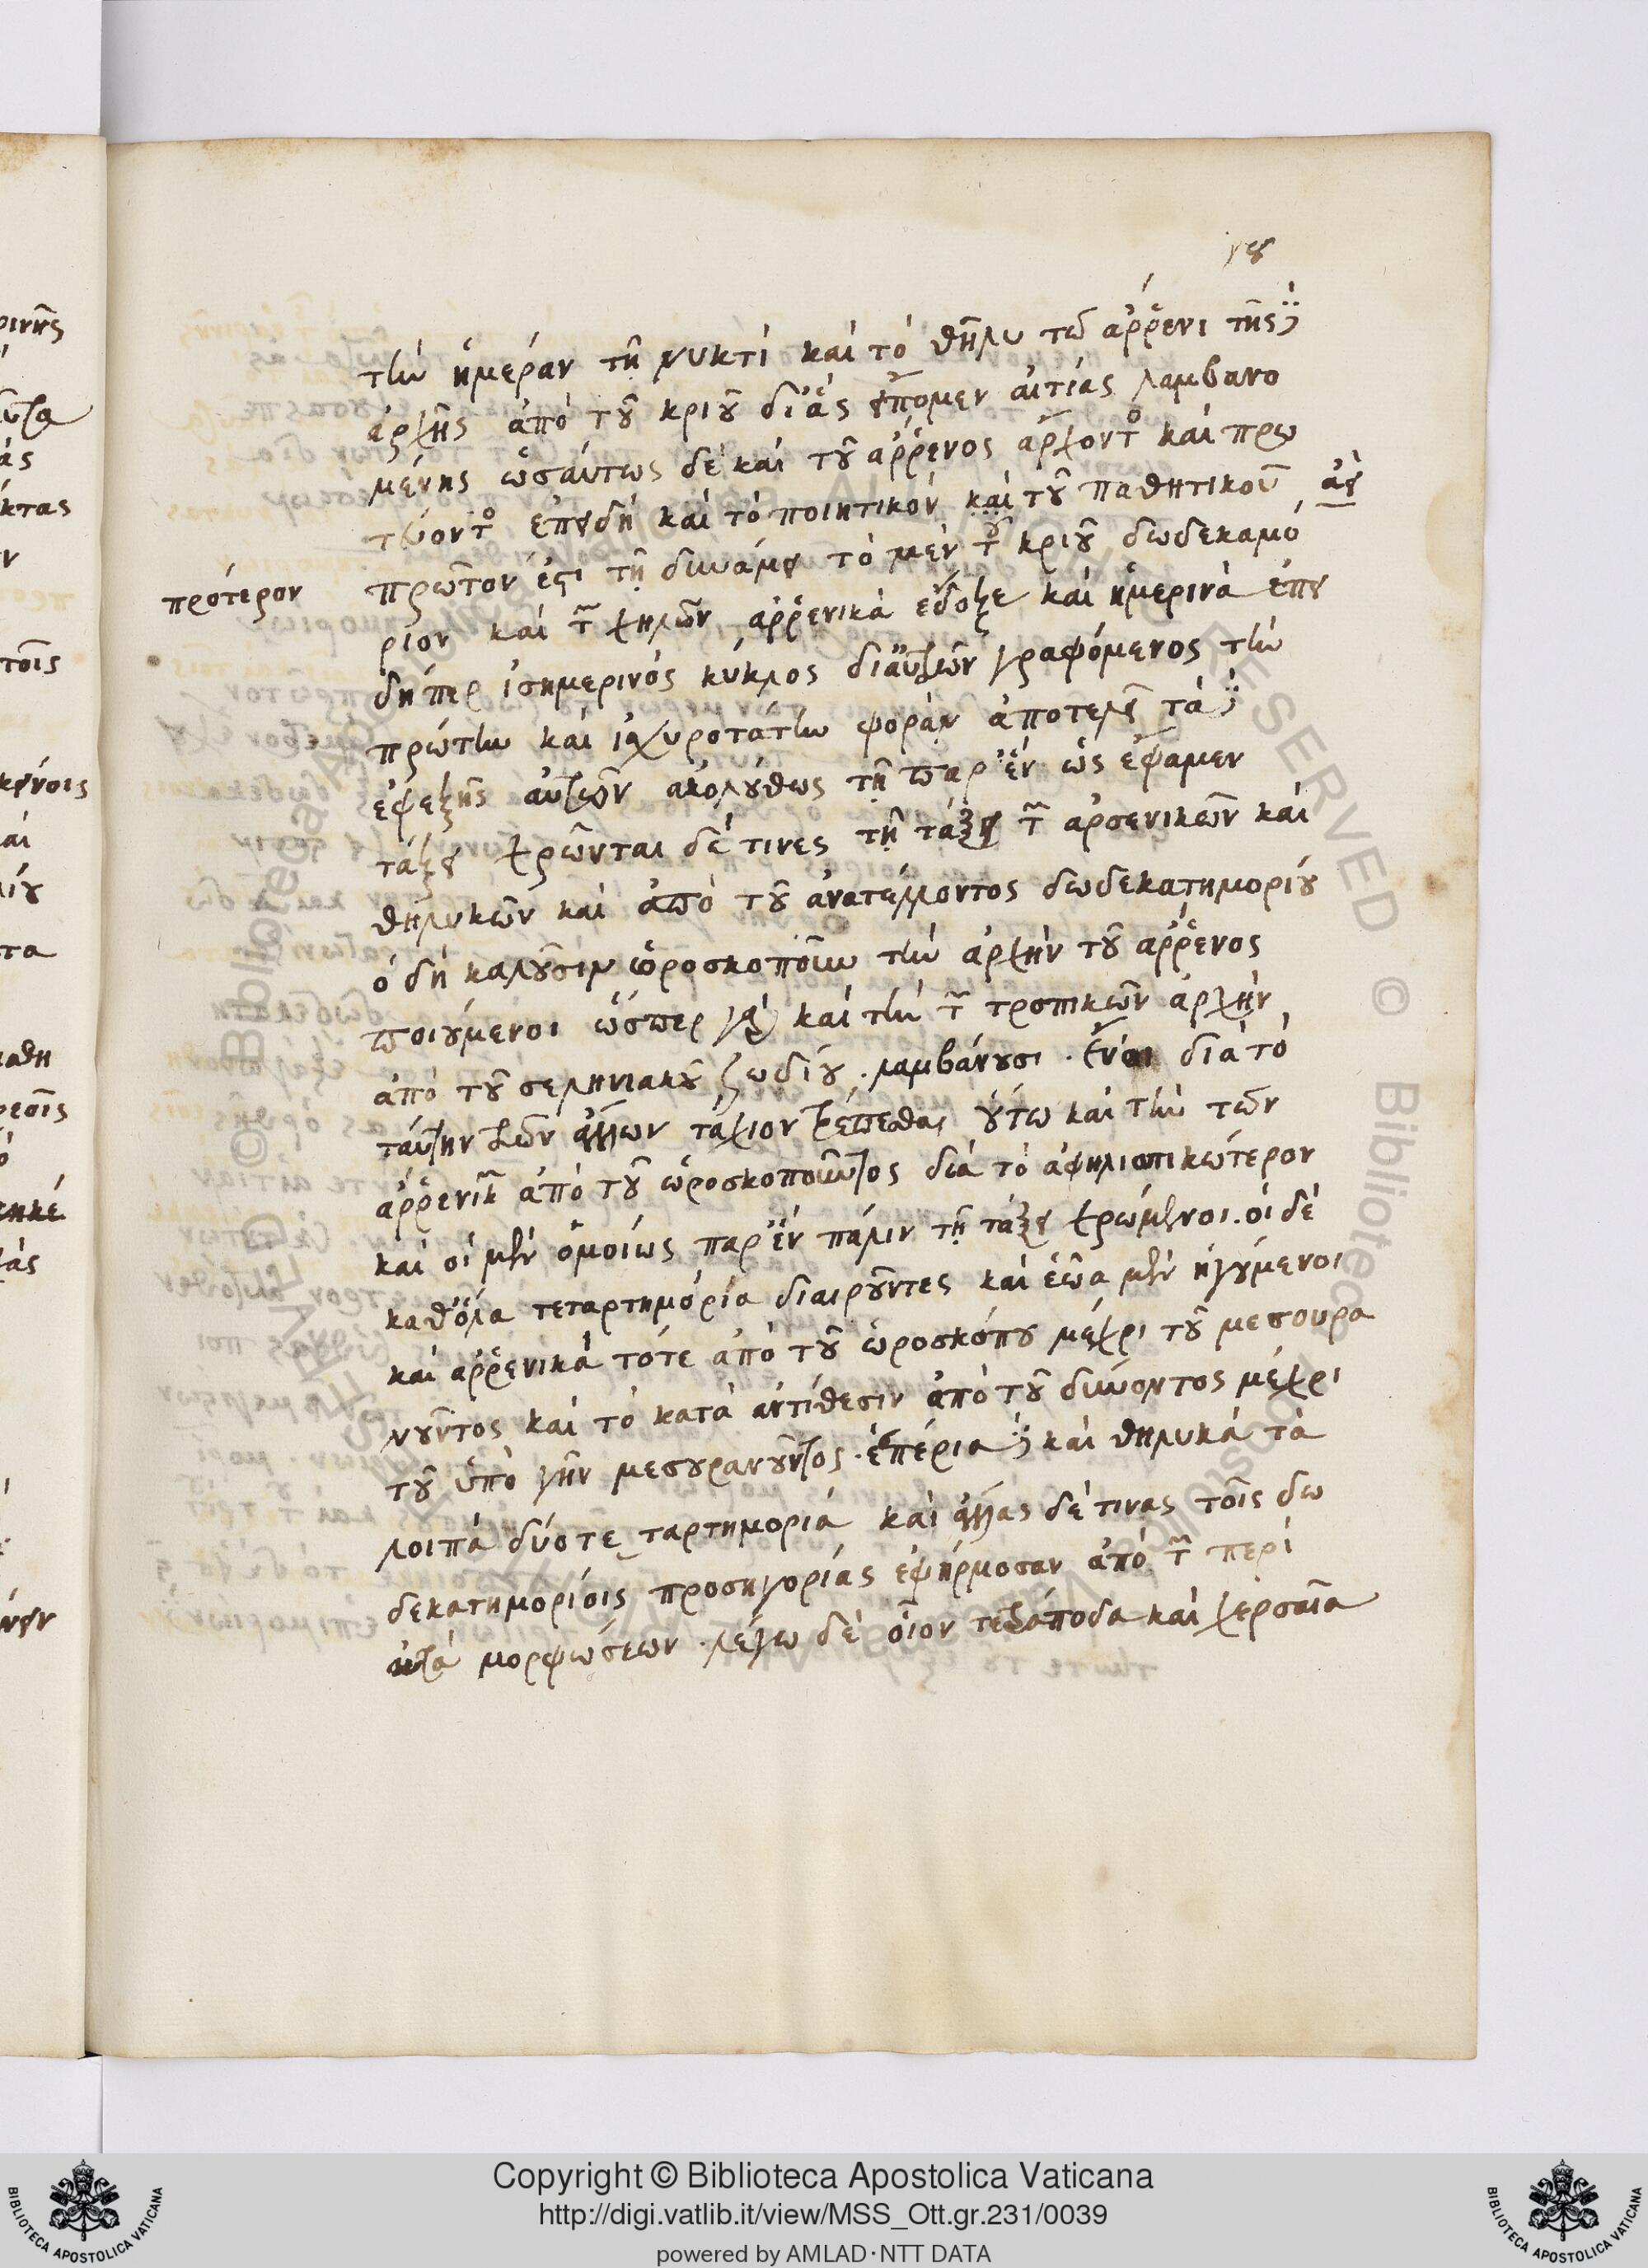 τὴν ἡμέραν τῇ νυκτὶ καὶ τὸ θῆλυ τῷ ἄρρενι τῆς
ἀρχῆς ἀπὸ τοῦ κριοῦ δι' ἃς εἴπομεν αἰτίας λαμβανο
μένης ὡσαύτως δὲ καὶ τοῦ ἄρρενος ἄρχοντος καὶ πρω
τεύοντος ἐπειδὴ καὶ τὸ ποιητικὸν καὶ τοῦ παθητικοῦ ἀεὶ
πρότερον
πρῶτον ἐστι τῇ δυνάμει τὸ μὲν τοῦ κριοῦ δωδεκαμό
ριον καὶ τῶν χηλῶν ἀρρενικὰ ἔδοξε καὶ ἡμερινὰ ἐπει
δήπερ ἰσημερινὸς κύκλος δι' αὐτῶν γραφόμενος τὴν
πρώτην καὶ ἰσχυροτάτην φορὰν ἀποτελεῖ τὰ
ἐφεξῆς αὐτῶν ἀκολούθως τῇ παρ' ἓν ὡς ἔφαμεν
τάξει χρῶνται δέ τινες τῇ τάξει τῶν ἀρσενικῶν καὶ
θηλυκῶν καὶ ἀπὸ τοῦ ἀνατέλλοντος δωδεκατημορίου
ὁ δὴ καλοῦσιν ὡροσκοποῦν τὴν ἀρχὴν τοῦ ἄρρενος
ποιούμενοι ὥσπερ γὰρ καὶ τὴν τῶν τροπικῶν ἀρχὴν
ἀπὸ τοῦ σεληνιακοῦ ζωδίου. λαμβάνουσι. ἔνιοι διὰ τὸ
ταύτην τῶν ἄλλων τάχιον τρέπεσθαι οὕτω καὶ τὴν τῶν
ἀρρενικῶν ἀπὸ τοῦ ὡροσκοποῦντος διὰ τὸ ἀφηλιοτικώτερον
καὶ οἱ μὲν ὁμοίως παρ' ἓν πάλιν τῇ τάξει χρώμενοι. οἱ δὲ
καθ' ὅλα τεταρτημόρια διαιροῦντες καὶ ἑῷα μὲν ἡγούμενοι
καὶ ἀρρενικὰ τότε ἀπὸ τοῦ ὡροσκόπου μέχρι τοῦ μεσουρα
νοῦντος καὶ τὸ κατὰ ἀντίθεσιν ἀπὸ τοῦ δύνοντος μέχρι
τοῦ ὑπὸ γῆν μεσουρανοῦντος. ἑσπέρια καὶ θηλυκὰ τὰ
λοιπὰ δύο τεταρτημοριά καὶ ἄλλας δέ τινας τοῖς δω
δεκατημορίοις προσηγορίας ἐφήρμοσαν ἀπὸ τῶν περὶ
αὐτὰ μορφώσεων. λέγω δὲ οἷον τετράποδα καὶ χερσαῖα
Copyright © Biblioteca Apostolica Vaticana
http://digi.vatlib.it/view/MSS_Ott.gr.231/0039
powered by AMLAD·NTT DATA